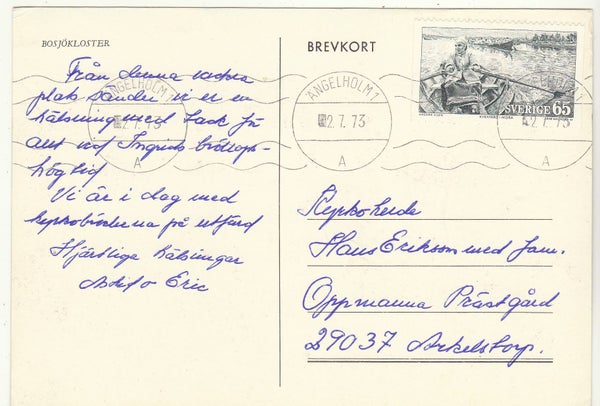 BOSJÖKLOSTER
Från denna vackra
plats sänder vi er en
hälsning med tack för
allt vid Ingrids bröllops-
högtid
Vi är i dag med
kyrkobröderna på utfärd
Hjärtliga hälsningar
o Eric
BREVKORT
ÄNGELHOLM 1
2.7.73
A
ÄNGELHOLM 1
2.7.73
A
ÄNGELHOLM 1
2.7.73
SVERIGE 65
Kyrkoherde
Hans Eriksson med fam.
Oppmanna Prästgård
29037 Arkelstorp.